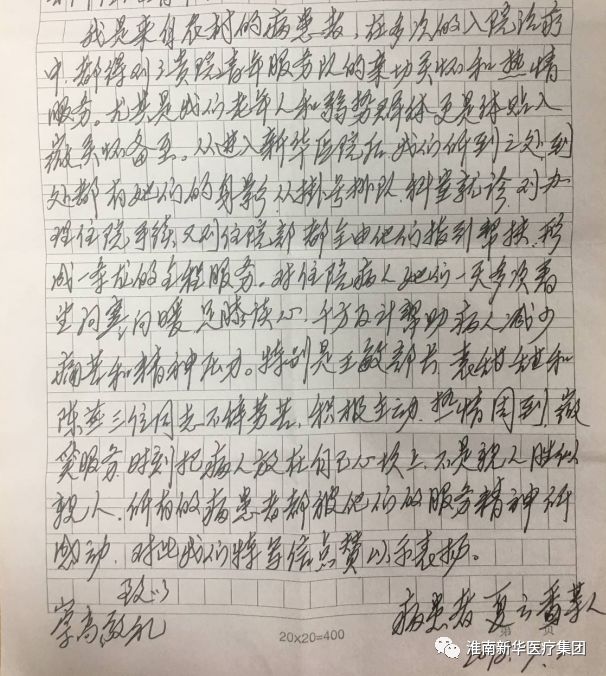 我是来自农村的病患者,在多次的入院治疗
中,都得到了贵院青年服务队的亲切关怀和热情
服务。尤其是我们老年人和弱势群体更是体贴入
微关怀备至。从进入新华医院后,我们所到之处到
处都有她们的身影,从挂号排队,科室就诊,对办
理住院手续,又到住院部都全由他们指到帮扶,形
成一条龙的全程服务。对住院病人她们一天多次看
望问寒问暖,促膝谈心,千方百计帮助病人减少
痛苦和精神压力。特别是王敏部长、袁
陈燕三位同志不辞劳苦,积极主动,热情周到,微
笑服务,时刻把病人放在自己心坎上,不是亲人胜似
亲人,所有的病患者都被他们的服务精神所
感动,对此我们特写信点赞以示表扬。
致以
崇高敬礼
病患者 夏云 等人
20×20=400
第 页
2018.
淮南新华医疗集团